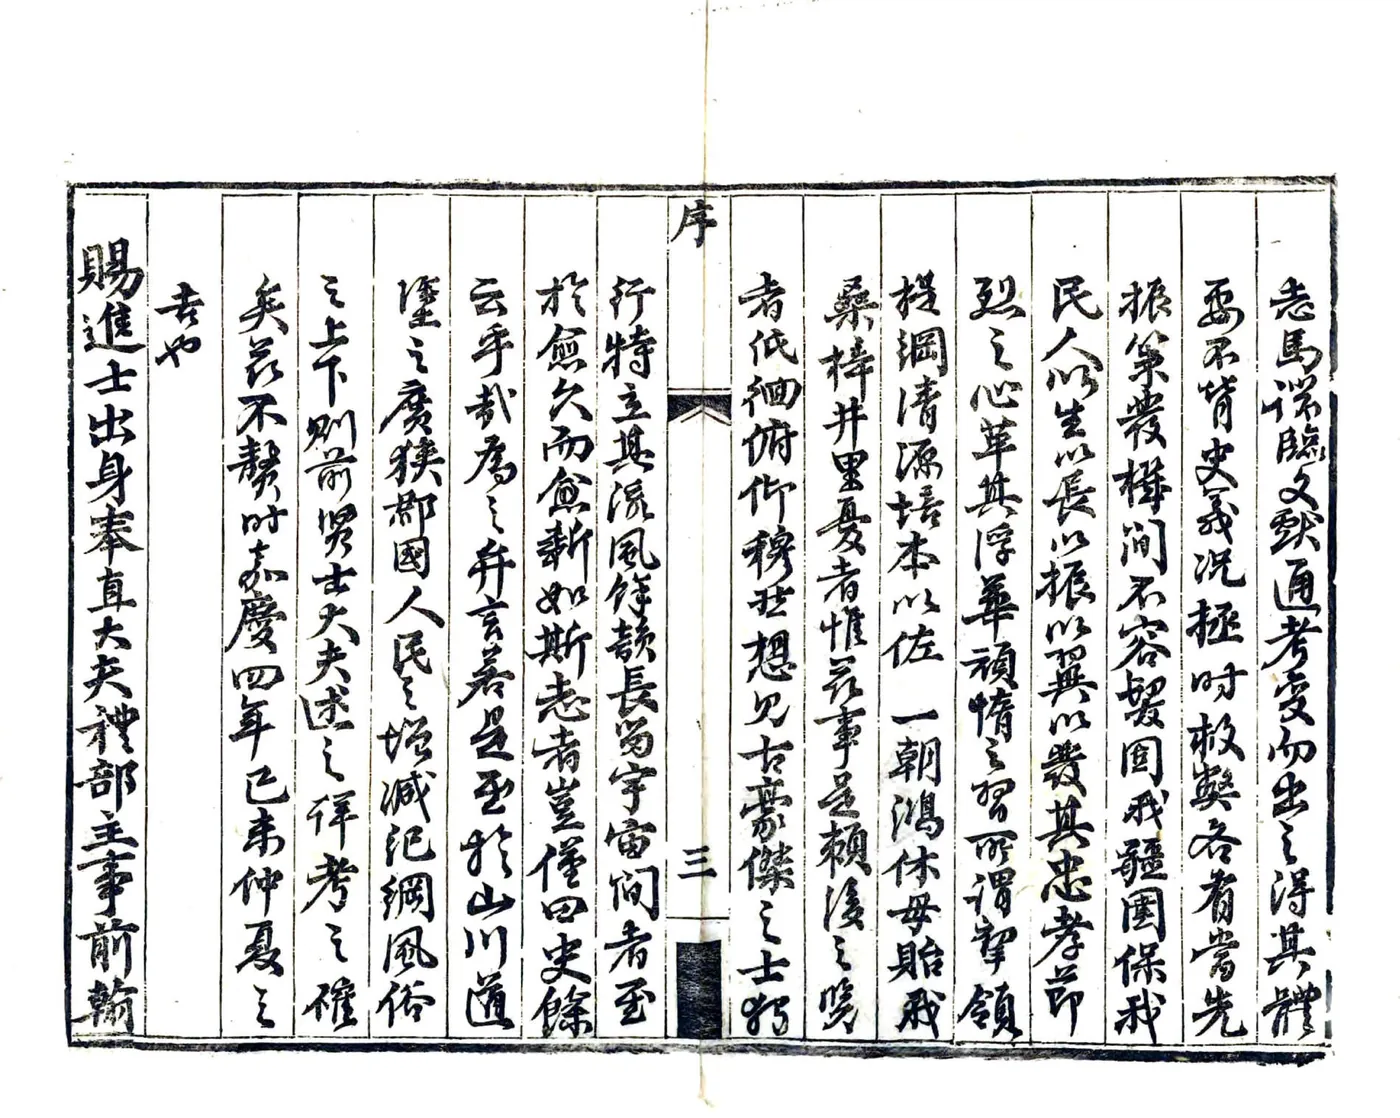 志馬端臨文獻通考變而出之得其體
要不背史義況拯时救弊各有當先
振策發機間不容髮固我疆圉保我
民人以生以長以振以翼以發其忠孝節
烈之心革其浮華頑惰之習所謂挈領
提綱清源培本以佐 一朝鴻休毋貽我
桑梓井里憂者惟茲事是賴後之覽
者低徊俯仰穆然想見古豪傑之士獨
序
三
行特立其流風餘韻長留宇宙间者至
於愈久而愈新如斯志者豈僅曰史餘
云乎哉為之弁言若是至於山川道
塗之廣狹郡國人民之增減紀綱風俗
之上下则前贤士大夫述之詳考之確
矣茲不贅时嘉慶四年己未仲夏之
吉也
賜進士出身奉直大夫禮部主事前翰